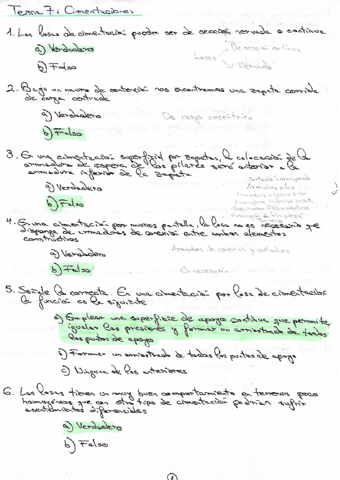 Tema 7: Cimentaciones
1. Las losas de cimentación pueden ser de sección nervada o continua
a) Verdadero
b) Falso
Losas
De sección continua
Nervada
2. Bajo un muro de contención nos encontramos una zapata corrida de carga centrada
a) Verdadero
b) Falso
De carga excéntrica
3. En una cimentación superficial por zapatas, la colocación de la
armadura de espera de los pilares será anterior a la
armadura inferior de la zapata
a) Verdadero
b) Falso
4. En una cimentación por muros pantalla, la losa no es necesario que
disponga de armaduras de conexión entre ambos elementos
constructivos
a) Verdadero
b) Falso
Es necesario
5. Señale la correcta. En una cimentación por losa de cimentación
la función es la siguiente
a) Emplear una superficie de apoyo continua que permite
igualar las presiones y formar un arriostrado de todos
los puntos de apoyo
b) Formar un arriostrado de todos los puntos de apoyo
c) Ninguna de las anteriores
6. Las losas tienen un muy buen comportamiento en terrenos poco
homogéneos que con otro tipo de cimentación podrían sufrir
asentamientos diferenciales
a) Verdadero
b) Falso